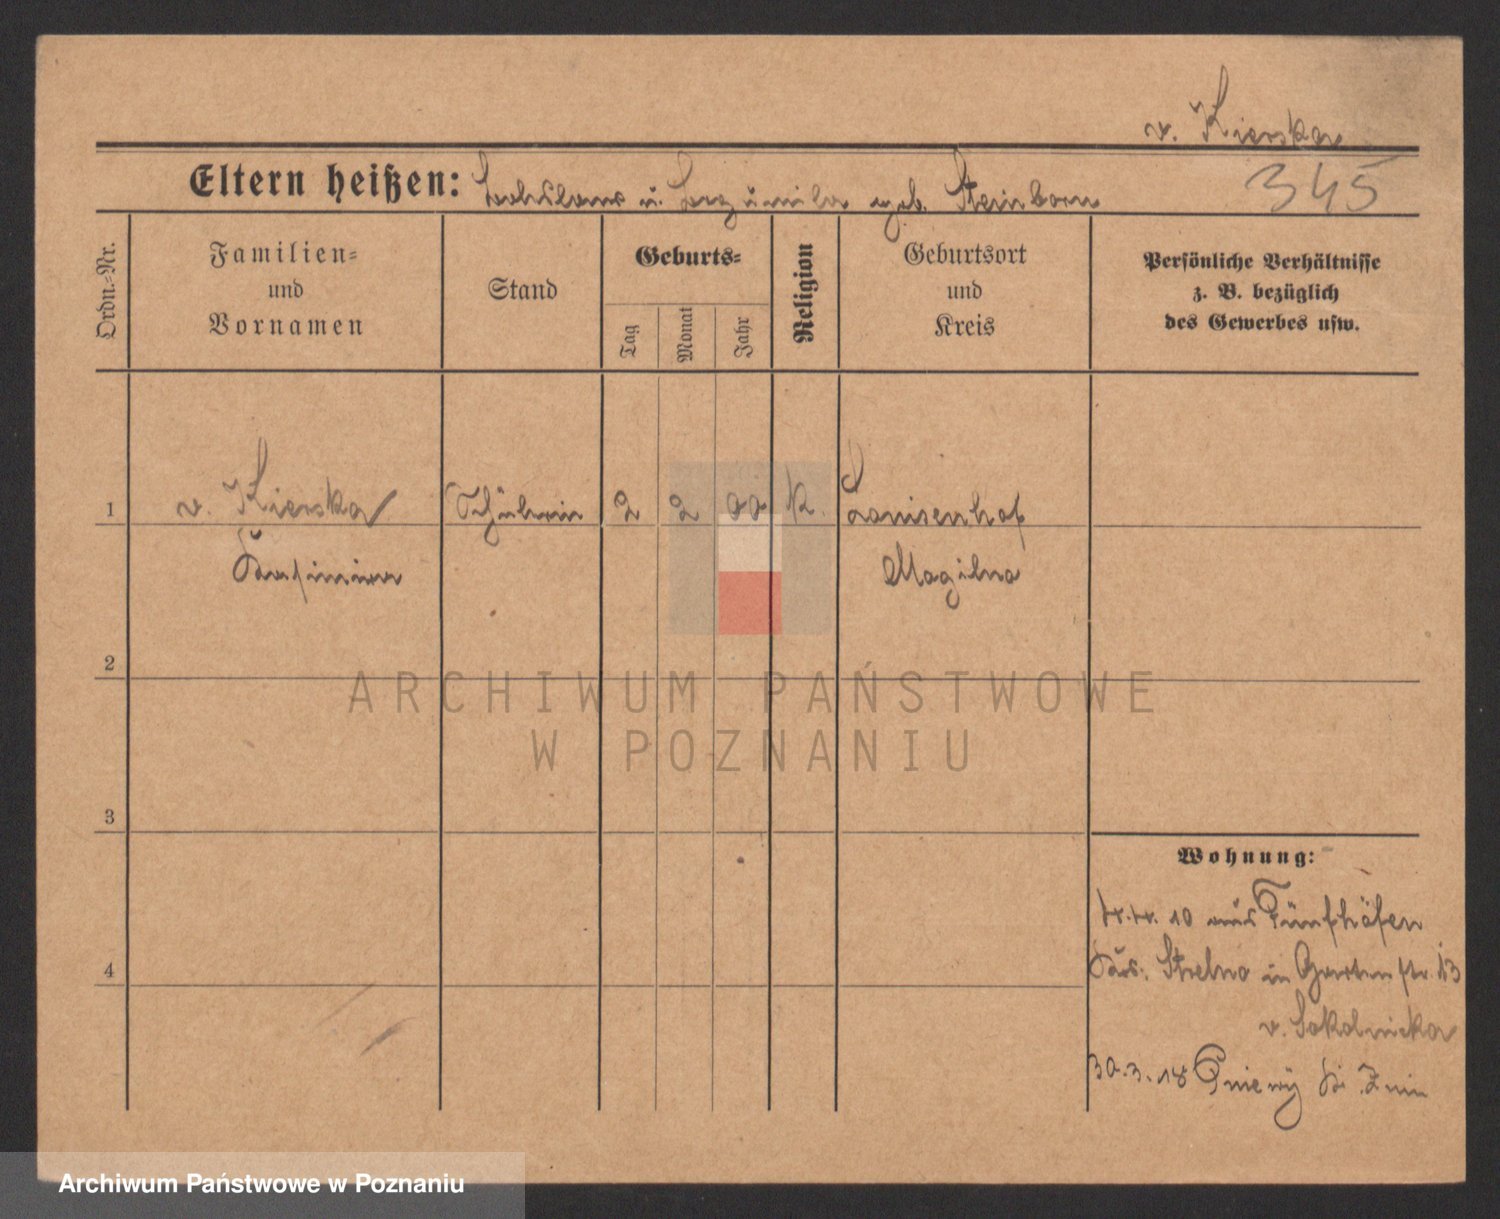 v. Kierska
Eltern heißen: u. geb. Steinborn 345
Ordn.-Nr.
Familien-
und
Vornamen
Stand
Geburts-
Tag
Monat
Jahr
Religion
Geburtsort
und
Kreis
Persönliche Verhältnisse
z. B. bezüglich
des Gewerbes usw.
1 v. Kierska Schülerin 2 2 00 K. Louisenhof
Mogilno
2
ARCHIWUM PAŃSTWOWE
W POZNANIU
3
Wohnung:
10 aus Fünfhöfen
4 Krs. Strelno in Gartenstr. 13
v. Sokolnicka
30.3.18 Znin
Archiwum Państwowe w Poznaniu